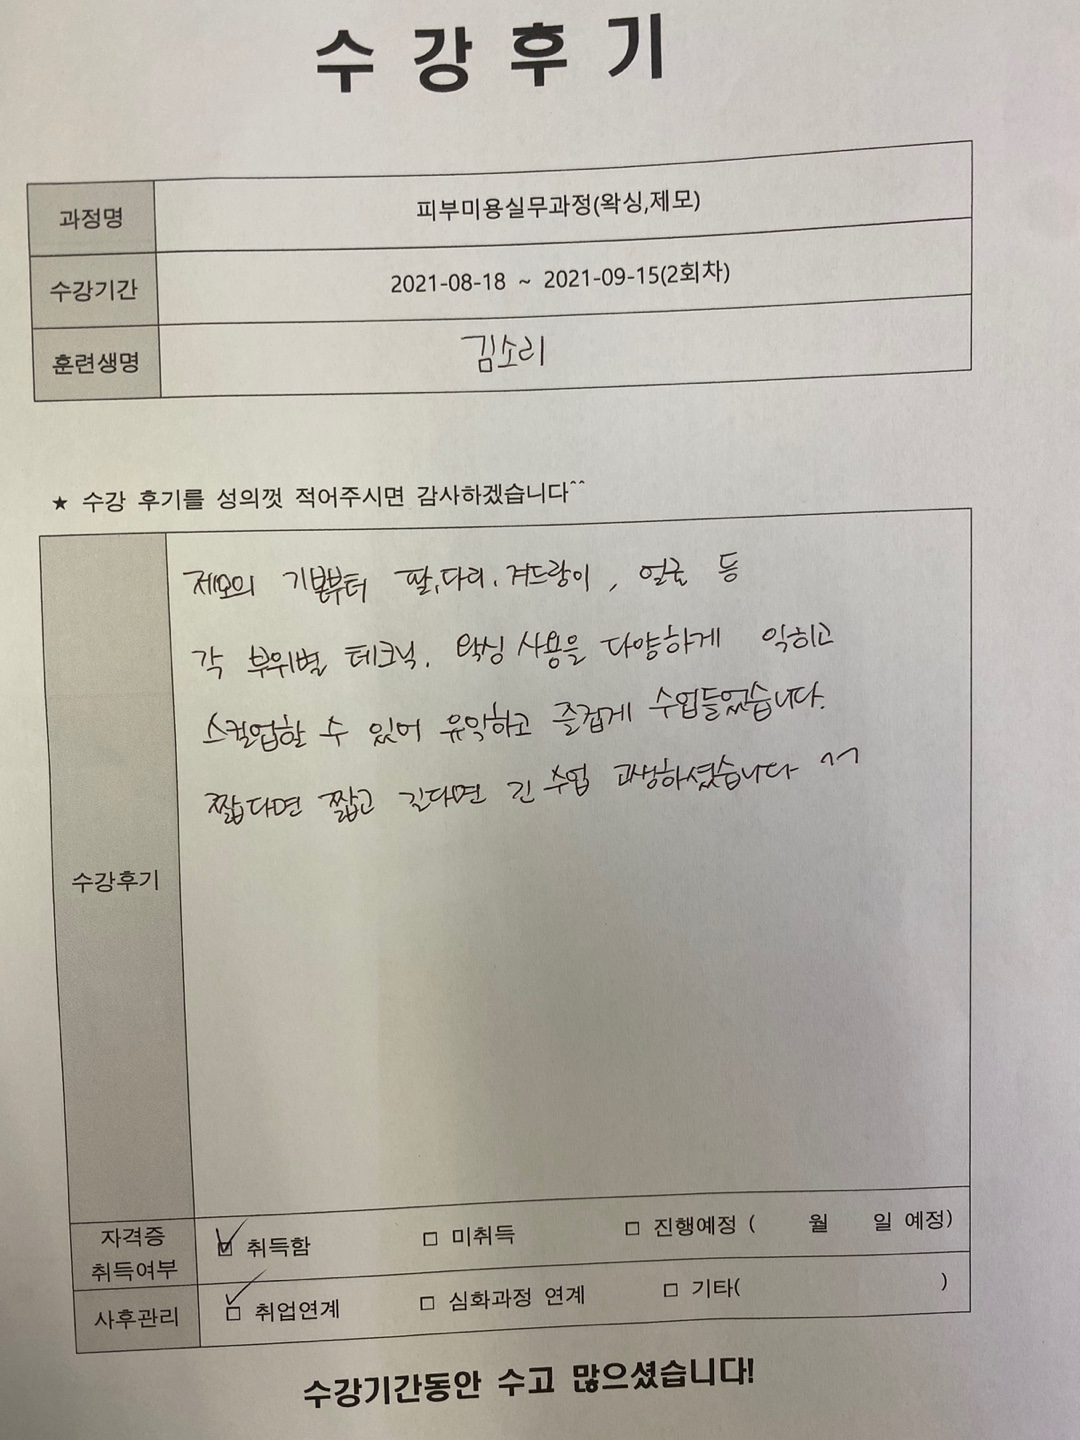 수강후기
과정명 피부미용실무과정(왁싱,제모)
수강기간 2021-08-18 ~ 2021-09-15(2회차)
훈련생명 김소리
★ 수강 후기를 성의껏 적어주시면 감사하겠습니다^^
수강후기
제모의 기본부터 팔,다리,겨드랑이, 얼굴 등
각 부위별 테크닉, 왁싱 사용을 다양하게 익히고
스킬업할 수 있어 유익하고 즐겁게 수업들었습니다.
짧다면 짧고 길다면 긴 수업 고생하셨습니다 ^^
자격증 취득여부 ☑ 취득함 □ 미취득 □ 진행예정 ( 월 일 예정)
사후관리 ☑ 취업연계 □ 심화과정 연계 □ 기타( )
수강기간동안 수고 많으셨습니다!